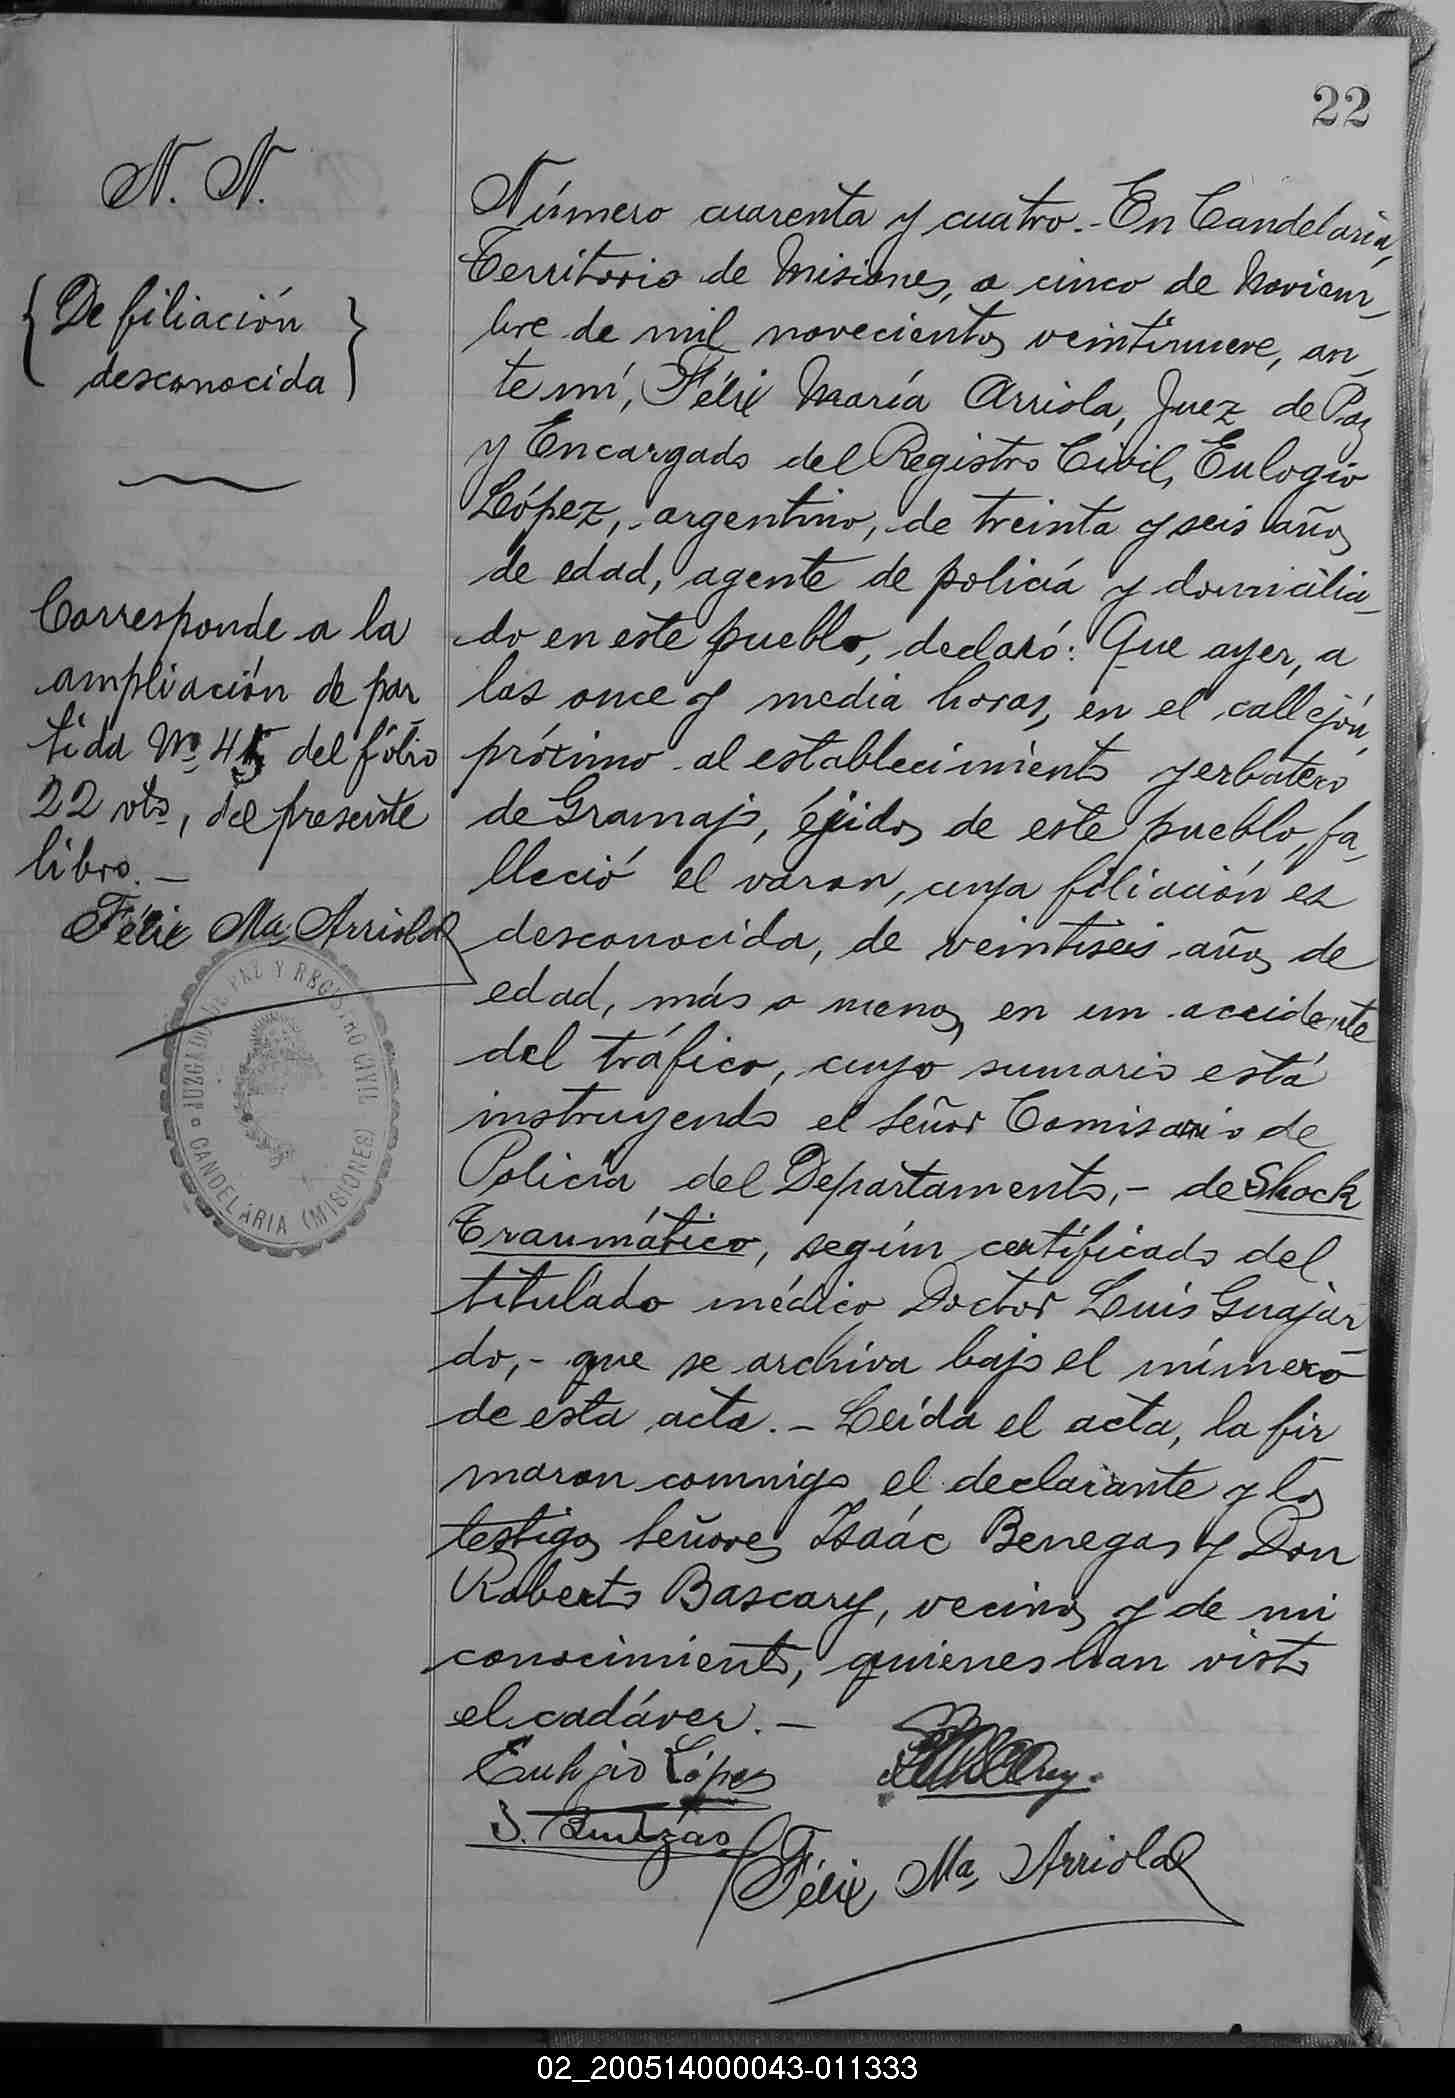 22
N. N.
De filiación
desconocida
Corresponde a la
ampliación de par
tida Nº 45 del fólio
22 vto, del presente
libro.—
Félix Ma Arriola
JUZGADO DE PAZ Y REGISTRO CIVIL
CANDELARIA (MISIONES)
Número cuarenta y cuatro.- En Candelaria,
Territorio de Misiones, a cinco de Noviem-
bre de mil novecientos veintinueve, an-
te mí, Félix María Arriola, Juez de Paz
y Encargado del Registro Civil, Eulogio
López, argentino, de treinta y seis años
de edad, agente de policiá y domicilia-
do en este pueblo, declaró: Que ayer, a
las once y media horas, en el callejón,
próximo al establecimiento yerbatero
de Gramajo, éjidos de este pueblo, fa-
lleció el varon, cuya filiación es
desconocida, de veintiseis años de
edad, más o menos, en un accidente
del tráfico, cuyo sumario está
instruyendo el Señor Comisario de
Policía del Departamento,- de Shock
Traumático, según certificado del
titulado médico Doctor Luis Guajar-
do,- que se archiva bajo el número
de esta acta.- Leída el acta, la fir
maron conmigo el declarante y los
testigos Señores Isaác Benegas y Don
Roberto Bascary, vecinos y de mi
conocimiento, quienes han visto
el cadáver.—
Eulogio López
Félix Ma Arriola
02_200514000043-011333